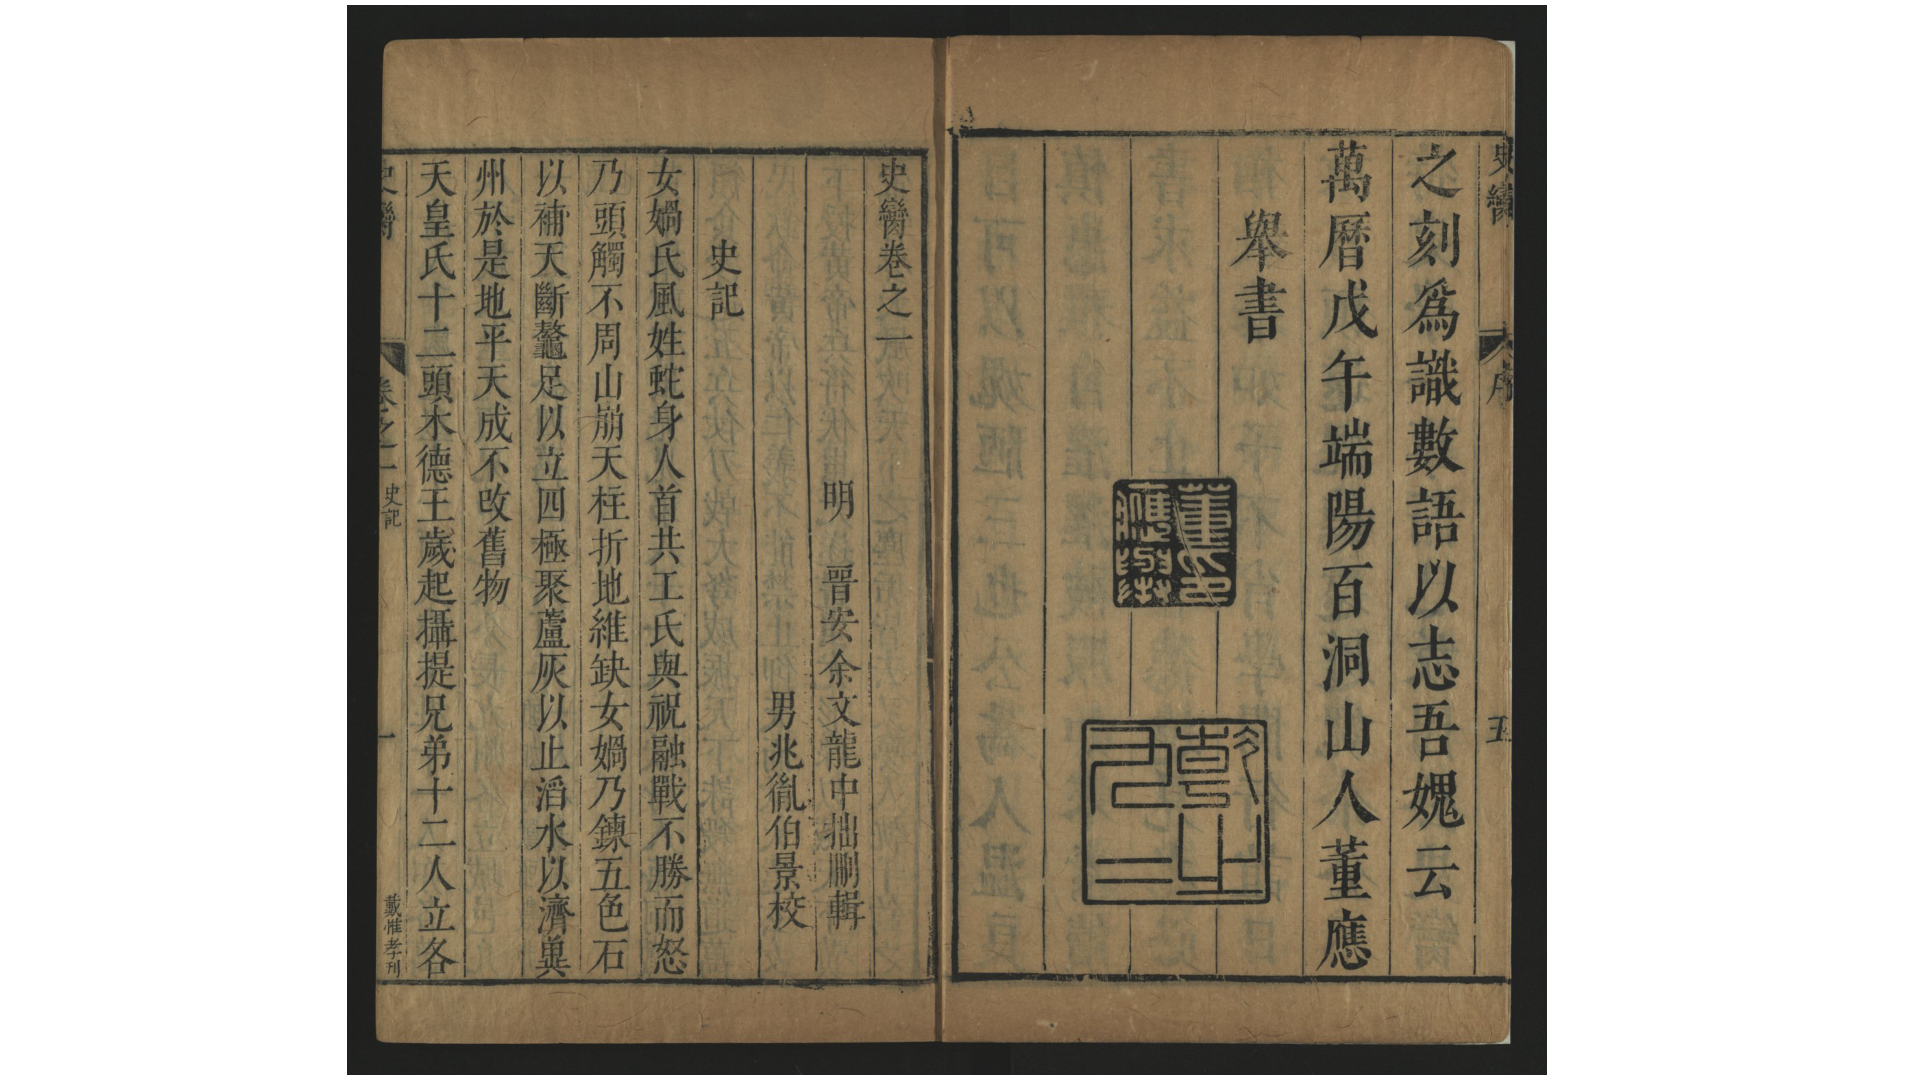 史臠
序
五
之刻爲識數語以志吾媿云
萬曆戊午端陽百洞山人董應
舉書
董氏
史臠卷之一
明 晉安余文龍中拙刪輯
男兆胤伯景校
史記
女媧氏風姓蛇身人首共工氏與祝融戰不勝而怒
乃頭觸不周山崩天柱折地維缺女媧乃鍊五色石
以補天斷鼇足以立四極聚蘆灰以止滔水以濟冀
州於是地平天成不改舊物
天皇氏十二頭木德王歲起攝提兄弟十二人立各
史臠
卷之一
史記
一
戴惟孝刊